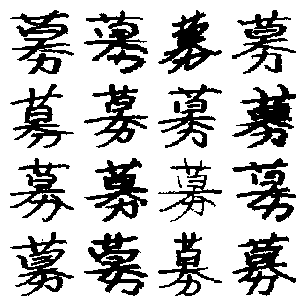 募募募募
募募募募
募募募募
募募募募